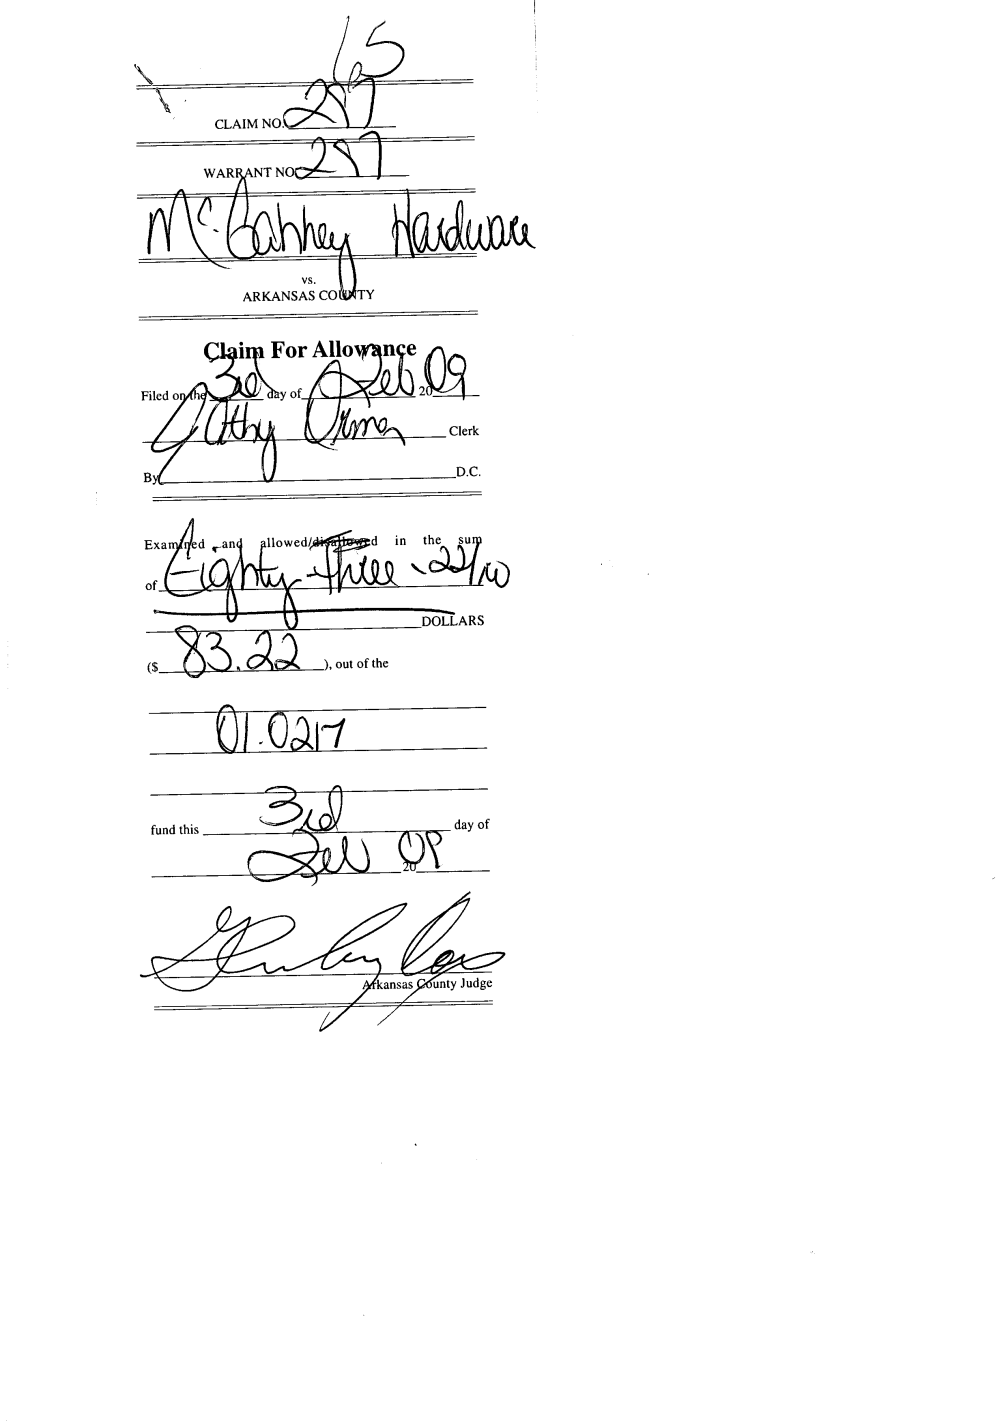 65
CLAIM NO. 287
WARRANT NO. 287
McGahhey Hardware
vs.
ARKANSAS COUNTY
Claim For Allowance
Filed on the 3rd day of Feb 2009
Clerk
By D.C.
Examined and allowed/disallowed in the sum
of Eighty-three 22/100
DOLLARS
($ 83.22 ), out of the
01.0217
fund this 3rd day of
Feb 2009
Arkansas County Judge